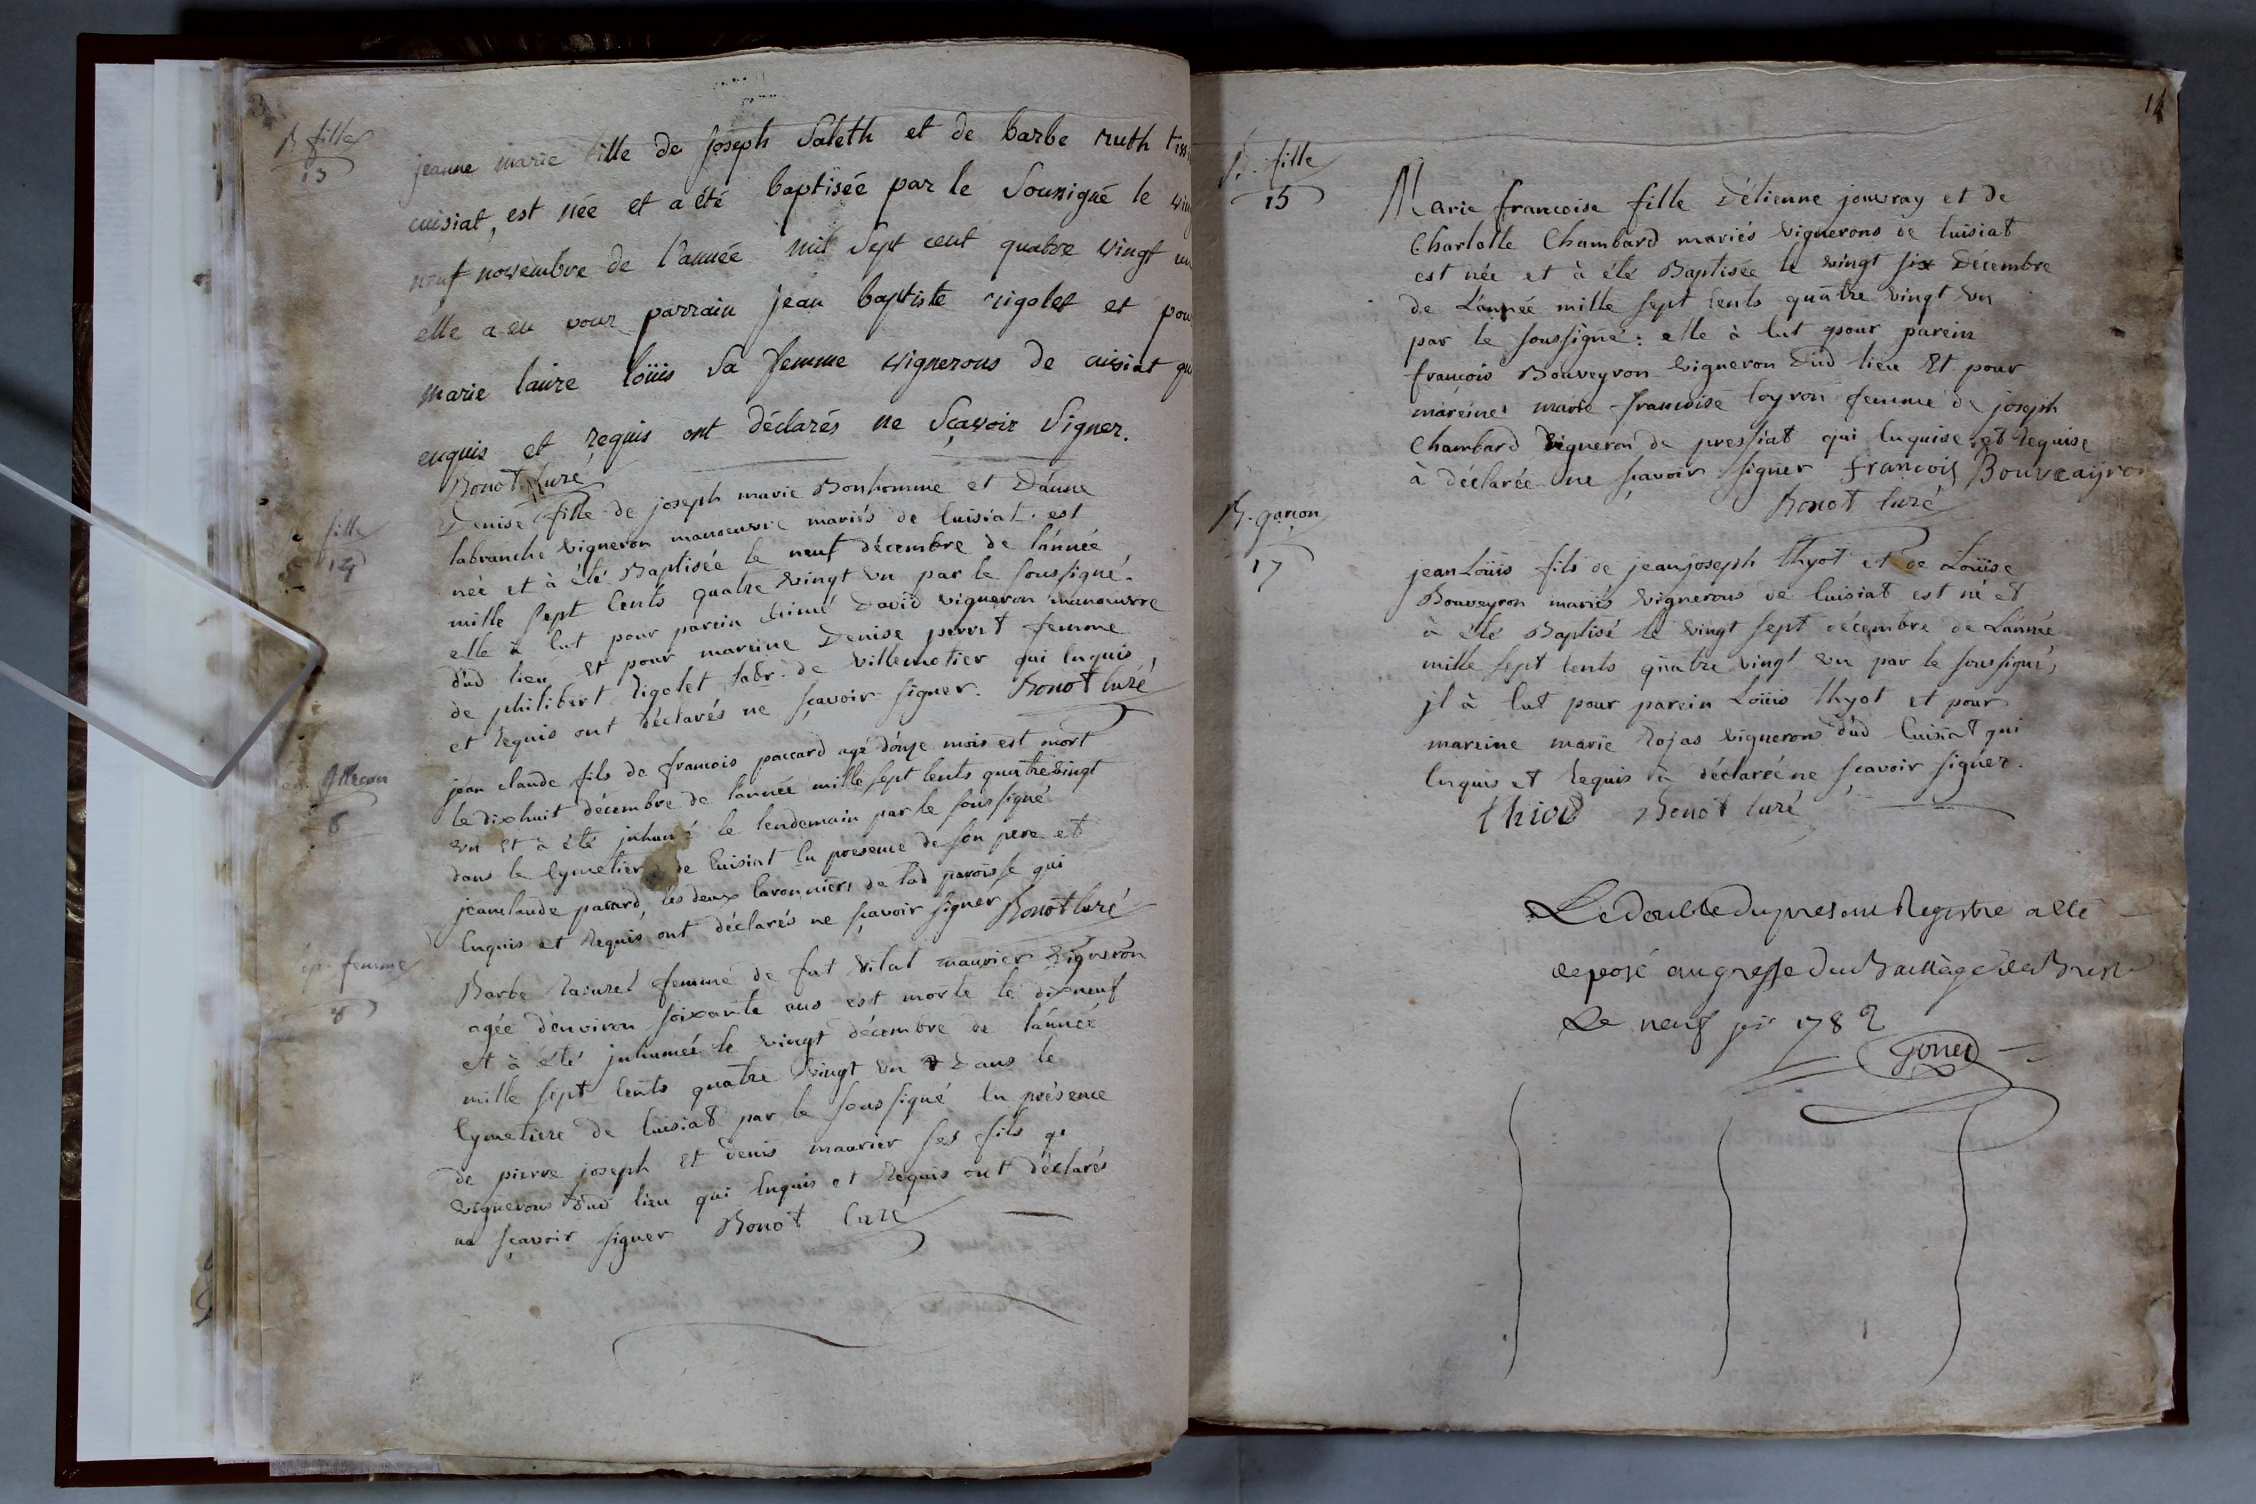 B. fille
13
jeanne marie fille de joseph Saleth et de barbe ruth
cuisiat, est née et a été baptisée par le Sousigné le
neuf novembre de l'année mil Sept cent quatre vingt
elle a eu pour parrain jean baptiste rigolet et
marie laure loüis Sa femme vignerons de cuisiat
enquis et requis ont déclarés ne Sçavoir Signer.
Bonot Curé
fille
14
Denise fille de joseph marie Bonhomme et D'anne
labranche vigneron manoeuvre mariés de Cuisiat. est
née et à été Baptisée le neuf décembre de l'année
mille Sept Cents quatre vingt un par le soussigné.
elle à Eut pour parein Aimé David vigneron manoeuvre
dud lieu Et pour mareine Denise perret femme
de philibert Rigolet labr. de villemotier qui Enquis
et Requis ont déclarés ne sçavoir signer. Bonot Curé
6
jean claude fils de francois paccard agé d'onze mois est mort
le dixhuit décembre de l'année mille sept Cents quatrevingt
un Et à été inhumé le lendemain par le soussigné
dans le Cymetiere de Cuisiat En presence de son pere et
jeanclaude pacard, les deux de lad paroisse qui
Enquis et Requis ont déclarés ne sçavoir signer Bonot Curé
femme
Barbe femme de fut vilat maurier vigneron
agée d'environ soixante ans est morte le dixneuf
et à été inhumée le vingt décembre de l'année
mille sept Cents quatre vingt un Dans le
Cymetiere de Cuisiat par le soussigné En présence
de pierre joseph et denis maurier ses fils
vignerons dud lieu qui Enquis et Requis ont déclarés
ne sçavoir signer Bonot Curé
14
B. fille
15
Marie francoise fille d'étienne jouvray et de
Charlotte Chambard mariés vignerons de Cuisiat
est née et à été Baptisée le vingt six Decembre
de L'année mille sept Cents quatre vingt un
par le soussigné: elle à Eut pour parein
francois Bouveyron vigneron dud lieu Et pour
mareine marie francoise loyron femme de joseph
Chambard vigneron de pressiat qui Enquise et Requise
à déclarée ne sçavoir signer francois Bouveayron
Bonot Curé
B. garcon
17
jean Loüis fils de jeanjoseph thyot et de Loüise
Bouveyron mariés vignerons de Cuisiat est né et
à été Baptisé le vingt sept décembre de L'année
mille sept Cents quatre vingt un par le soussigné,
jl à Eut pour parein Loüis thyot et pour
mareine marie Rojas vignerons dud Cuisiat qui
Enquis et Requis à déclarée ne sçavoir signer.
thiot Bonot Curé
Le double du present Registre a eté
deposé au greffe du Bailliage de Bresse
Le neuf jer 1782